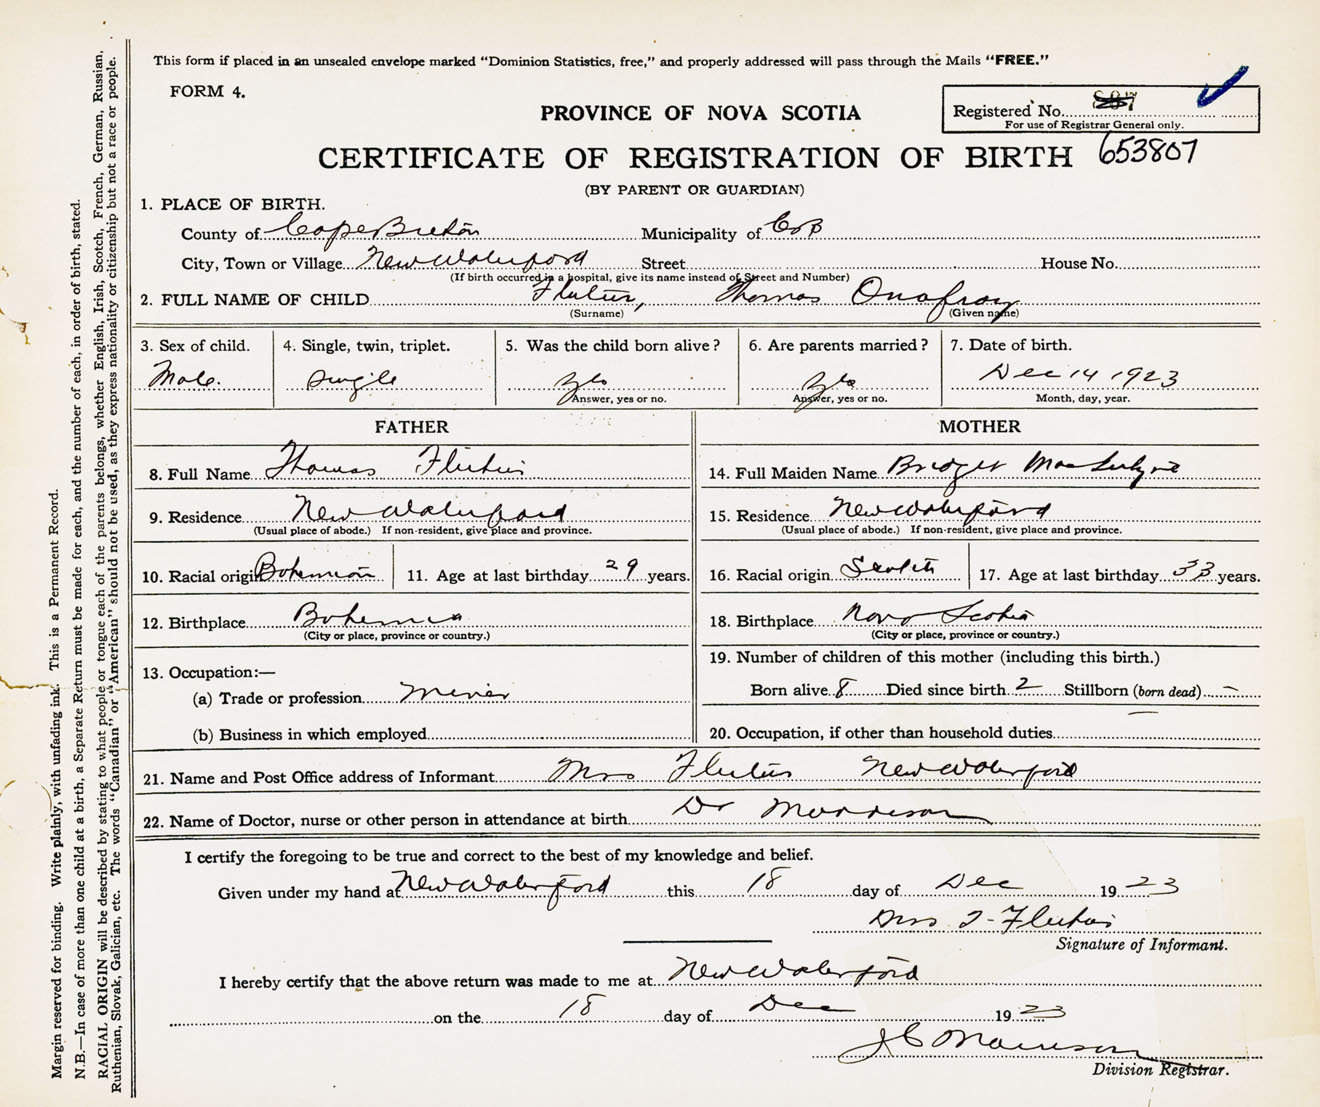 This form if placed in an unsealed envelope marked "Dominion Statistics, free," and properly addressed will pass through the Mails "FREE."
FORM 4.
PROVINCE OF NOVA SCOTIA
Registered No.
For use of Registrar General only.
CERTIFICATE OF REGISTRATION OF BIRTH 653807
(BY PARENT OR GUARDIAN)
1. PLACE OF BIRTH.
County of Cape Breton Municipality of CB
City, Town or Village New Waterford Street House No.
(If birth occurred in a hospital, give its name instead of Street and Number)
2. FULL NAME OF CHILD Thomas
(Surname) (Given name)
3. Sex of child. 4. Single, twin, triplet. 5. Was the child born alive? 6. Are parents married? 7. Date of birth.
Male. Single Yes Yes Dec 14 1923
Answer, yes or no. Answer, yes or no. Month, day, year.
FATHER MOTHER
8. Full Name Thomas 14. Full Maiden Name
9. Residence New Waterford 15. Residence New Waterford
(Usual place of abode.) If non-resident, give place and province. (Usual place of abode.) If non-resident, give place and province.
10. Racial origin Bohemian 11. Age at last birthday 29 years. 16. Racial origin Scotch 17. Age at last birthday 33 years.
12. Birthplace Bohemia 18. Birthplace Nova Scotia
(City or place, province or country.) (City or place, province or country.)
13. Occupation:— 19. Number of children of this mother (including this birth.)
(a) Trade or profession Miner Born alive 8 Died since birth 2 Stillborn (born dead) –
(b) Business in which employed 20. Occupation, if other than household duties –
21. Name and Post Office address of Informant Mrs New Waterford
22. Name of Doctor, nurse or other person in attendance at birth Dr Morrison
I certify the foregoing to be true and correct to the best of my knowledge and belief.
Given under my hand at New Waterford this 18 day of Dec 1923
Mrs T.
Signature of Informant.
I hereby certify that the above return was made to me at New Waterford
on the 18 day of Dec 1923
J C Morrison
Division Registrar.
Margin reserved for binding. Write plainly, with unfading ink. This is a Permanent Record.
N.B.—In case of more than one child at a birth, a Separate Return must be made for each, and the number of each, in order of birth, stated.
RACIAL ORIGIN will be described by stating to what people or tongue each of the parents belongs, whether English, Irish, Scotch, French, German, Russian,
Ruthenian, Slovak, Galician, etc. The words "Canadian" or "American" should not be used, as they express nationality or citizenship but not a race or people.